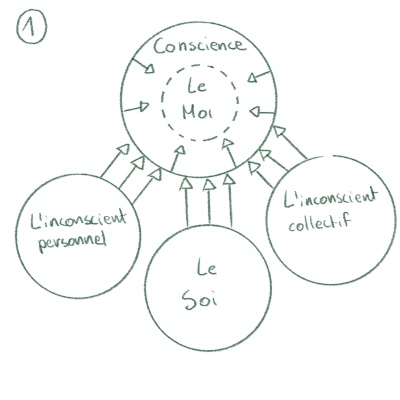 1
Conscience
Le
Moi
L'inconscient
personnel
Le
Soi
L'inconscient
collectif